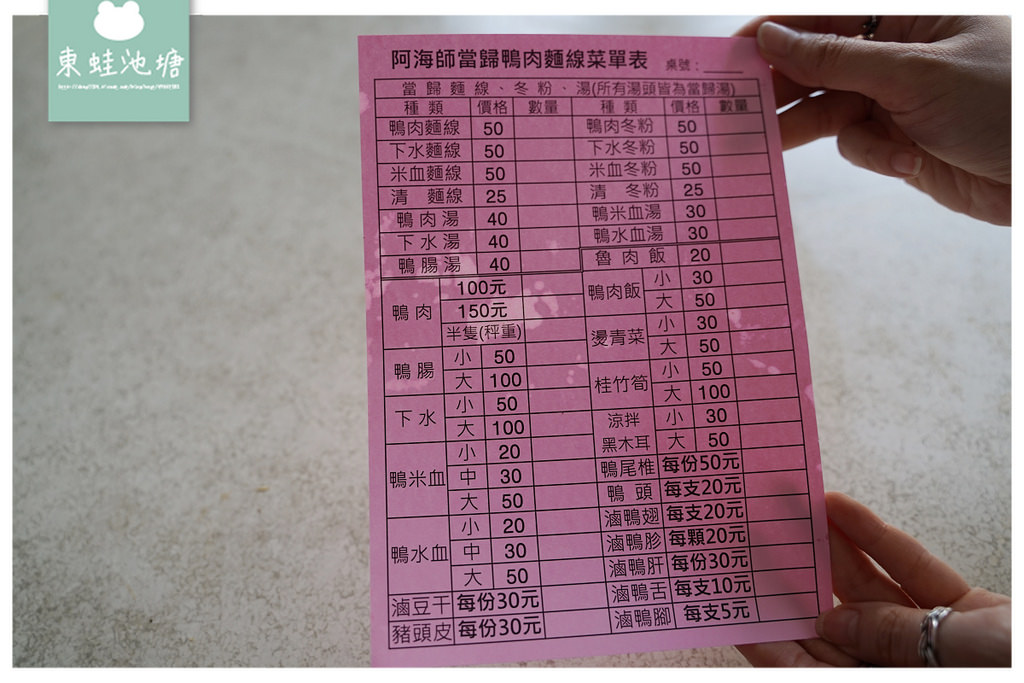 東蛙池塘
阿海師當歸鴨肉麵線菜單表 桌號：
當歸麵線、冬粉、湯(所有湯頭皆為當歸湯)
種類 價格 數量 種類 價格 數量
鴨肉麵線 50 鴨肉冬粉 50
下水麵線 50 下水冬粉 50
米血麵線 50 米血冬粉 50
清 麵線 25 清 冬粉 25
鴨肉湯 40 鴨米血湯 30
下水湯 40 鴨水血湯 30
鴨腸湯 40 魯肉飯 20
鴨肉 100元 鴨肉飯 小 30
150元 大 50
半隻(秤重) 燙青菜 小 30
鴨腸 小 50 大 50
大 100 桂竹筍 小 50
下水 小 50 大 100
大 100 涼拌黑木耳 小 30
鴨米血 小 20 大 50
中 30 鴨尾椎 每份50元
大 50 鴨頭 每支20元
鴨水血 小 20 滷鴨翅 每支20元
中 30 滷鴨胗 每顆20元
大 50 滷鴨肝 每份30元
滷豆干 每份30元 滷鴨舌 每支10元
豬頭皮 每份30元 滷鴨腳 每支5元